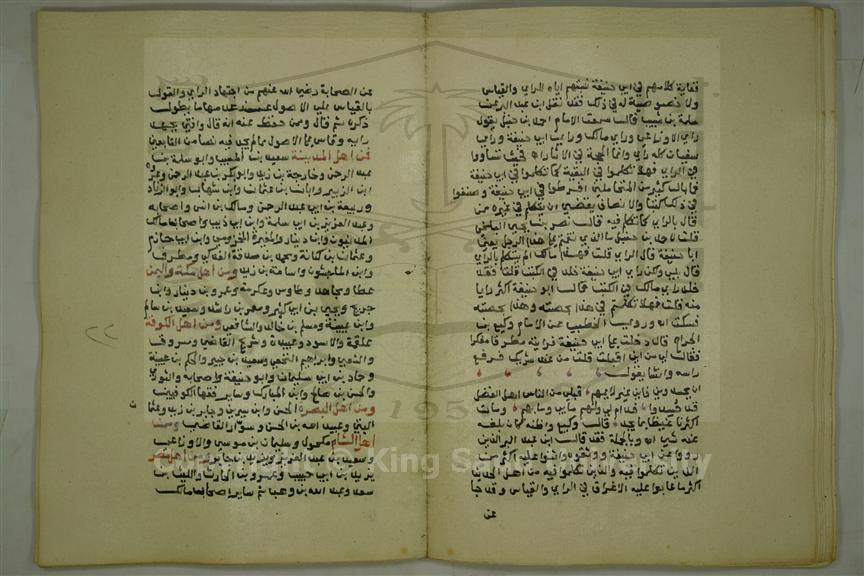 فغاية كلامهم في ابي حنيفة نسبتهم اياه للراي والقياس
ولا خصوصية له في ذلك فقد نقل ابن عبد البر عن
سلمة بن شبيب قال سمعت الامام احمد بن حنبل يقول
راي الاوزاعي وراي مالك وراي ابي حنيفة وراي
سفيان كله راي وانما الحجة في الاثار فحيث تساووا
في الراي فهلا تكلموا في البقية كما تكلموا في ابي حنيفة
فما بال كثير من المتحاملين افرطوا في ابي حنيفة وصنفوا
في ذلك كتبا والانصاف يقتضي ان يتكلم في غيره ممن
قال بالراي كما تكلم فيه قال نصر بن يحيى البلخي
قلت لاحمد بن حنبل ما الذي تنقم على هذا الرجل يعني
ابا حنيفة قال الراي قلت فهذا مالك الم يتكلم بالراي
قال بلى ولكن راي ابي حنيفة خلد في الكتب قلت فقد
خلد راي مالك في الكتب قال ابو حنيفة اكثر رايا
منه قلت فهلا تكلمتم في هذا بحصته وهذا بحصته
فسكت اه وروى الخطيب عن الامام وكيع بن
الجراح قال دخلت على ابي حنيفة فرايته مطرقا مفكرا
فقال لي من اين اقبلت قلت من عند شريك فرفع
راسه وانشا يقول
ان يحسدوني فاني غير لائمهم قبلي من الناس اهل الفضل
قد حسدوا فدام لي ولهم ما بي وما بهم ومات
اكثرنا غيظا بما يجد قال وكيع واظنه كان بلغه
عنه شي اه وبالجملة فقد قال ابن عبد البر الذين
رووا عن ابي حنيفة ووثقوه واثنوا عليه اكثر من
الذين تكلموا فيه والذين تكلموا فيه من اهل الحديث
اكثر ما عابوا عليه الاغراق في الراي والقياس وقد جا
عن
عن الصحابة رضي الله عنهم من اجتهاد الراي والقول
بالقياس على الاصول عند عدمها ما يطول
ذكره ثم قال وممن حفظ عنه انه قال وافتى مجتهدا
رايه وقاس على الاصول مما لم يجد فيه نصا من التابعين
فمن اهل المدينة سعيد بن المسيب وابو سلمة بن
عبد الرحمن وخارجة بن زيد وابو بكر بن عبد الرحمن وعروة
ابن الزبير وابان بن عثمان وابن شهاب وابو الزناد
وربيعة بن ابي عبد الرحمن ومالك بن انس واصحابه
وعبد العزيز بن ابي سلمة وابن ابي ذيب واصحاب مالك
المدنيون وابن دينار والمغيرة المخزومي وابن ابي حازم
وعثمان بن كنانة ومحمد بن صدقة الفدكي ومطرف
وابن الماجشون واسامة بن زيد ومن اهل مكة واليمن
عطا ومجاهد وطاوس وعكرمة وعمرو بن دينار وابن
جريج ويحيى بن ابي كثير ومعمر بن راشد وسعيد بن سالم
وابن عيينة ومسلم بن خالد والشافعي ومن اهل الكوفة
علقمة والاسود وعبيدة وشريح القاضي ومسروق
والشعبي وابراهيم النخعي وسعيد بن جبير والحكم بن عيينة
وحماد بن ابي سليمان وابو حنيفة واصحابه والثوري
والحسن بن صالح وابن المبارك وساير فقها الكوفيين
ومن اهل البصرة الحسن وابن سيرين وجابر بن زيد وعثمان
البتي وعبيد الله بن الحسن وسوار القاضي ومن
اهل الشام مكحول وسليمان بن موسى والاوزاعي
وسعيد بن عبد العزيز ويزيد بن جابر ومن اهل مصر
يزيد بن ابي حبيب وعمرو بن الحارث والليث بن
سعد وعبد الله بن وهب ثم ساير اصحاب مالك
٢٢
1957
Copyright © King Saud University